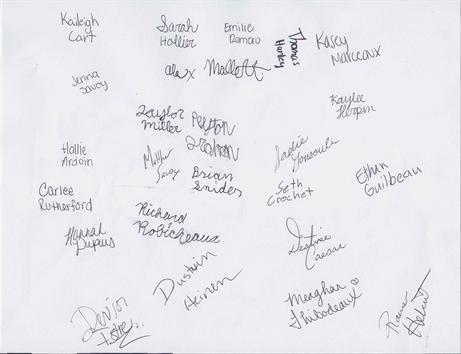 Kaileigh
Cart
Sarah
Hollier
Emilie
Romero
Thomas
Hurley
Kasey
Marceaux
Jenna
Savoy
alex
Mallett
Kaylee
Herpin
Taylor
Miller
Peyton
Hollie
Ardoin
Savoy
Sadie
Brian
Snider
Seth
Crochet
Ethan
Guilbeau
Carlee
Rutherford
Richard
Robicheaux
Hannah
Dupuis
Destinee
Caesar
Dustin
Heinen
Meaghan
Thibodeaux